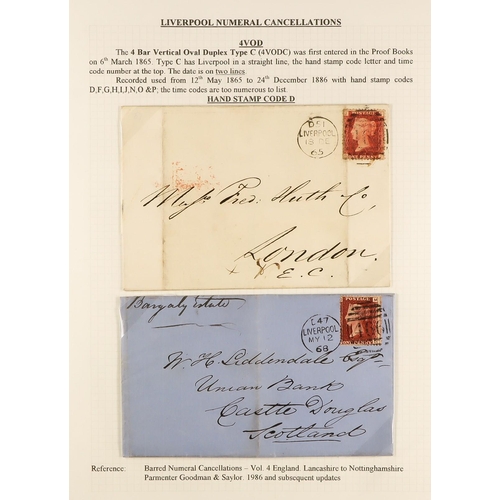 LIVERPOOL NUMERAL CANCELLATIONS
4VOD
The 4 Bar Vertical Oval Duplex Type C (4VODC) was first entered in the Proof Books
on 6th March 1865. Type C has Liverpool in a straight line, the hand stamp code letter and time
code number at the top. The date is on two lines.
Recorded used from 12th May 1865 to 24th December 1886 with hand stamp codes
D,F,G,H,I,J,N,O &P; the time codes are too numerous to list.
HAND STAMP CODE D
D51
LIVERPOOL
18 DE
65
POSTAGE
ONE PENNY
Messrs Fred. Huth & Co,
London.
E.C.
Bargaly Estate
47
LIVERPOOL
MY 12
68
POSTAGE
ONE PENNY
W. H. Liddendale Esqr
Union Bank
Castle Douglas
Scotland
Reference: Barred Numeral Cancellations – Vol. 4 England. Lancashire to Nottinghamshire
Parmenter Goodman & Saylor 1986 and subsequent updates